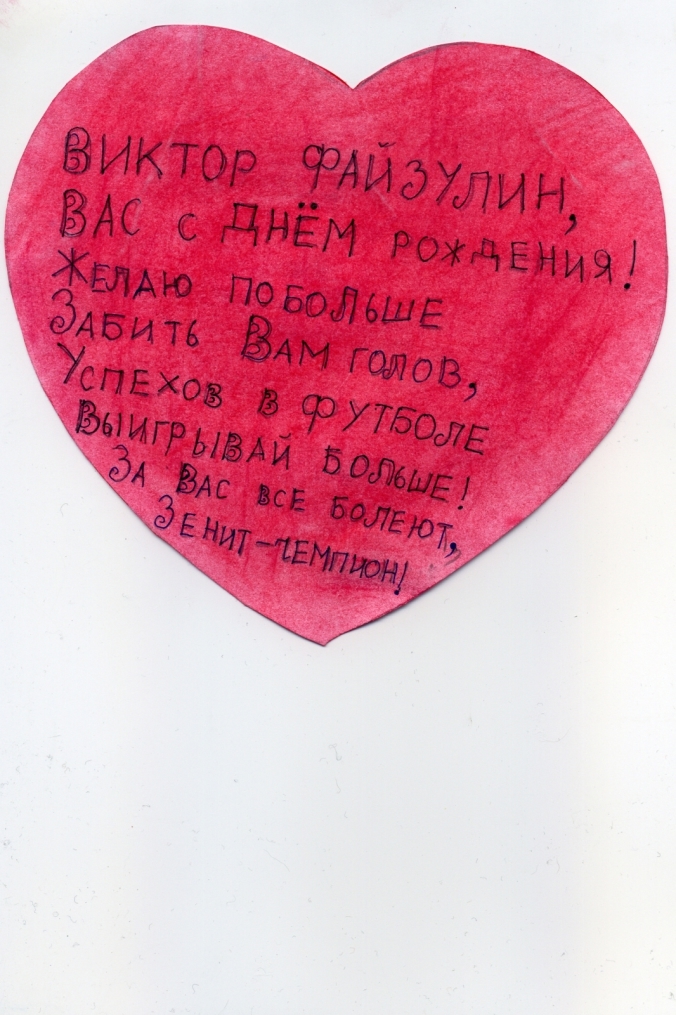 Виктор Файзулин,
Вас с Днём рождения!
Желаю побольше
Забить Вам голов,
Успехов в футболе
Выигрывай больше!
За Вас все болеют,
Зенит-чемпион!